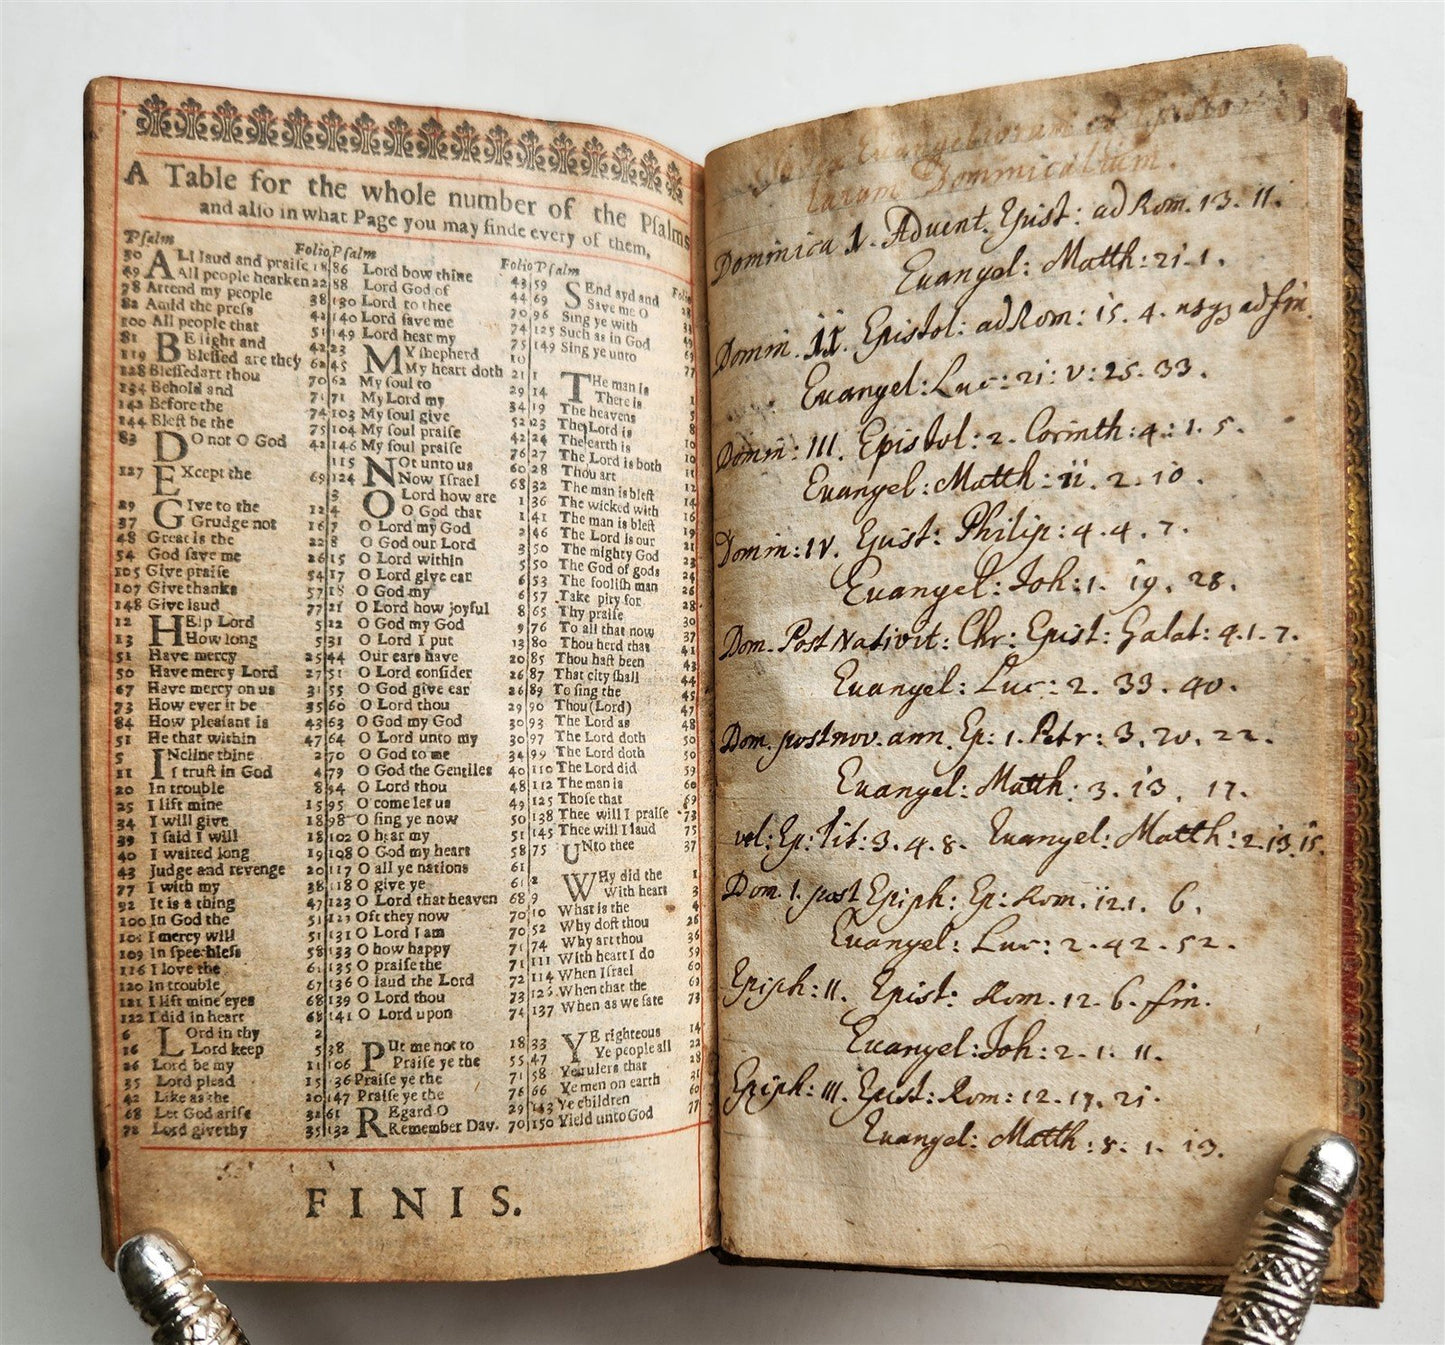 A Table for the whole number of the Pſalms
and alſo in what Page you may finde every of them,
Pſalm Folio
30 ALl laud and praiſe 18
49 All people hearken 22
78 Attend my people 38
82 Amid the preſs 42
100 All people that 51
81 BE light and 42
119 Bleſſed are they 62
128 Bleſſed art thou 70
134 Behold and 71
142 Before the 74
144 Bleſt be the 75
83 DO not O God 42
127 EXcept the 69
29 GIve to the
37 Grudge not 16
48 Great is the 22
54 God ſave me 26
105 Give praiſe 54
107 Give thanks 57
148 Give laud 77
12 HElp Lord 5
13 How long 5
51 Have mercy 25
50 Have mercy Lord 27
67 Have mercy on us 31
73 How ever it be 35
84 How pleaſant is 43
51 He that within 47
5 INcline thine 2
11 I truſt in God 4
20 In trouble 8
25 I lift mine 15
34 I will give 18
39 I ſaid I will 18
40 I waited long 19
43 Judge and revenge 20
77 I with my 38
92 It is a thing 47
100 In God the 51
101 I mercy will 51
109 In ſpeechleſs 58
116 I love the 61
120 In trouble 67
121 I lift mine eyes 68
122 I did in heart 68
6 LOrd in thy 2
16 Lord keep 5
26 Lord be my 11
35 Lord plead 15
42 Like as the 20
68 Let God ariſe 32
72 Lord give thy 35
Pſalm Folio
86 Lord bow thine 43
88 Lord God of 44
130 Lord to thee 70
140 Lord ſave me 74
149 Lord hear my 75
23 MY ſhepherd 10
45 My heart doth 21
62 My ſoul to 29
71 My Lord my 34
103 My ſoul give 52
104 My ſoul praiſe 42
146 My ſoul praiſe 76
115 NOt unto us 60
124 Now Iſrael 68
3 O Lord how are 1
4 O God that 1
7 O Lord my God 2
8 O God our Lord 3
15 O Lord within 5
17 O Lord give ear 6
18 O God my 6
21 O Lord how joyful 8
22 O God my God 9
31 O Lord I put 13
44 Our ears have 20
51 O Lord conſider 26
55 O God give ear 26
60 O Lord thou 29
63 O God my God 30
64 O Lord unto my 30
70 O God to me 34
79 O God the Gentiles 40
94 O Lord thou 48
95 O come let us 49
98 O ſing ye now 50
102 O hear my 51
108 O God my heart 58
117 O all ye nations 61
118 O give ye 61
123 O Lord that heaven 68
129 Oft they now 70
131 O Lord I am 70
133 O how happy 71
135 O praiſe the 71
136 O laud the Lord 72
139 O Lord thou 73
141 O Lord upon 74
38 PUt me not to 18
106 Praiſe ye the 55
36 Praiſe ye the 71
147 Praiſe ye the 76
61 REgard O 29
132 Remember Dav. 70
Pſalm Folio
59 SEnd ayd and
69 Save me O
96 Sing ye with
125 Such as in God
149 Sing ye unto 77
1 THe man is 1
14 There is
19 The heavens
23 The Lord is 8
24 The earth is 10
27 The Lord is both
28 Thou art
32 The man is bleſt 14
36 The wicked with 16
41 The man is bleſt 19
46 The Lord is our 21
50 The mighty God 23
50 The God of gods 24
53 The fooliſh man 26
57 Take pity for 28
65 Thy praiſe 30
76 To all that now 37
80 Thou herd that 41
85 Thou haſt been 43
87 That city ſhall 44
89 To ſing the 45
90 Thou (Lord) 47
93 The Lord as 48
97 The Lord doth 50
99 The Lord doth 50
110 The Lord did 59
112 The man is 60
125 Thoſe that 69
138 Thee will I praiſe 73
145 Thee will I laud 75
75 UNto thee 37
2 WHy did the 1
9 With heart 3
10 What is the 4
52 Why doſt thou 26
74 Why art thou 36
111 With heart I do 59
114 When Iſrael 60
126 When that the 69
137 When as we ſate 73
33 YE righteous 14
47 Ye people all 22
58 Ye rulers that 28
66 Ye men on earth 31
113 Ye children 60
150 Yield unto God 77
FINIS.
Evangeliorum et Episto
larum Dominicalium.
Dominica I. Advent. Epist: ad Rom. 13. 11.
Euangel: Matth: 21. 1.
Domin. II. Epistol: ad Rom: 15. 4. usq3 ad fin.
Euangel: Luc: 21: v: 25. 33.
Domin: III. Epistol: 2. Corinth: 4: 1. 5.
Euangel: Matth: 11. 2. 10.
Domin: IV. Epist: Philip: 4. 4. 7.
Euangel: Joh: 1. 19. 28.
Dom. Post Nativit: Chr: Epist: Galat: 4. 1. 7.
Euangel: Luc: 2. 33. 40.
Dom. post nov. ann. Ep: 1. Petr: 3. 20. 22.
Euangel: Matth: 3. 13. 17.
vel: Ep: Tit: 3. 4. 8. Euangel: Matth: 2. 13. 15.
Dom. 1. post Epiph: Ep: Rom. 12. 1. 6.
Euangel: Luc: 2. 42. 52.
Epiph: II. Epist: Rom. 12. 6. fin.
Euangel: Joh: 2. 1. 11.
Epiph: III. Epist: Rom: 12. 17. 21.
Euangel: Matth: 8. 1. 13.